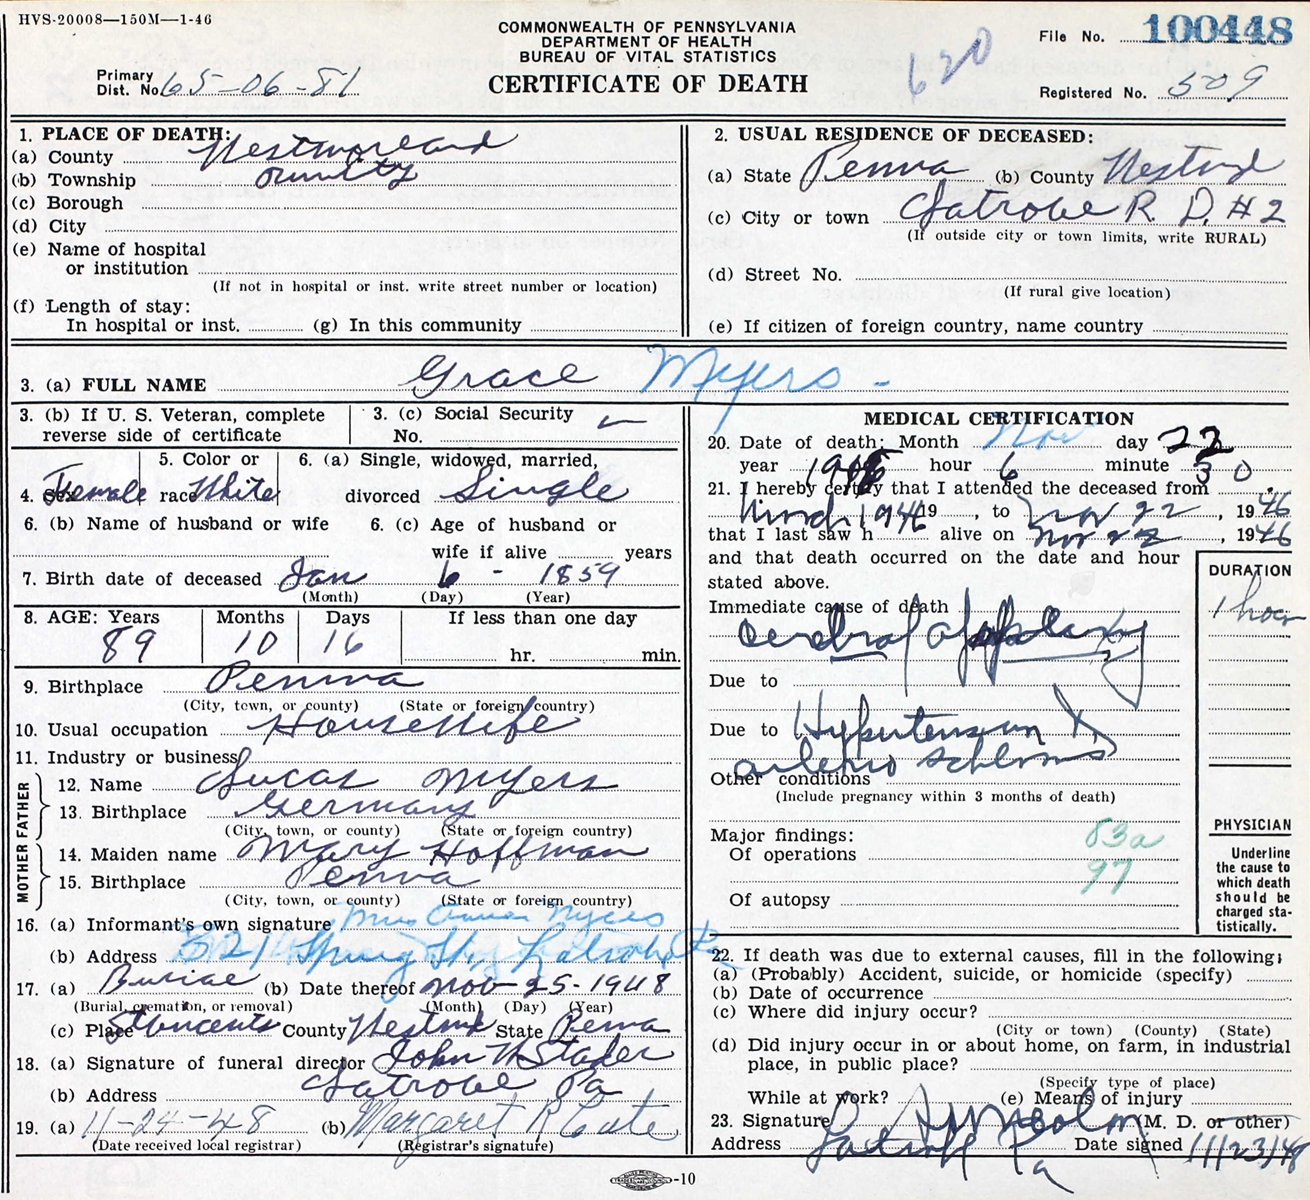 HVS-20008—150M—1-46
COMMONWEALTH OF PENNSYLVANIA
DEPARTMENT OF HEALTH
BUREAU OF VITAL STATISTICS
CERTIFICATE OF DEATH
620
File No. 100448
Primary
Dist. No. 65-06-81
Registered No. 509
1. PLACE OF DEATH:
(a) County Westmoreland
(b) Township Unity
(c) Borough
(d) City
(e) Name of hospital
or institution
(If not in hospital or inst. write street number or location)
(f) Length of stay:
In hospital or inst. (g) In this community
2. USUAL RESIDENCE OF DECEASED:
(a) State Penna (b) County Westmd
(c) City or town Latrobe R. D. #2
(If outside city or town limits, write RURAL)
(d) Street No.
(If rural give location)
(e) If citizen of foreign country, name country
3. (a) FULL NAME Grace Myers -
3. (b) If U. S. Veteran, complete
reverse side of certificate
3. (c) Social Security
No.
4. Sex Female
5. Color or
race White
6. (a) Single, widowed, married,
divorced Single
6. (b) Name of husband or wife
6. (c) Age of husband or
wife if alive years
7. Birth date of deceased Jan 6 - 1859
(Month) (Day) (Year)
8. AGE: Years Months Days If less than one day
89 10 16 hr. min.
9. Birthplace Penna
(City, town, or county) (State or foreign country)
10. Usual occupation Housewife
11. Industry or business
FATHER
12. Name Lucas Myers
13. Birthplace Germany
(City, town, or county) (State or foreign country)
MOTHER
14. Maiden name Mary Hoffman
15. Birthplace Penna
(City, town, or county) (State or foreign country)
16. (a) Informant's own signature Mrs Myers
(b) Address Spring Latrobe Pa
17. (a) Burial (b) Date thereof Nov-25-1948
(Burial, cremation, or removal) (Month) (Day) (Year)
(c) Place St Vincents County Westmd State Penna
18. (a) Signature of funeral director John Stader
(b) Address Latrobe Pa
19. (a) 11-24-48 (b) Margaret R Cute
(Date received local registrar) (Registrar's signature)
MEDICAL CERTIFICATION
20. Date of death: Month Nov day 22
year hour 6 minute 30
21. I hereby certify that I attended the deceased from
March 1946 19 , to Nov 22 , 1946
that I last saw h alive on Nov 22 , 1946
and that death occurred on the date and hour
stated above.
DURATION
Immediate cause of death 1 hour
cerebral apoplexy
Due to
Due to Hypertension &
arterio
Other conditions
(Include pregnancy within 3 months of death)
Major findings:
Of operations
83a
97
Of autopsy
PHYSICIAN
Underline
the cause to
which death
should be
charged sta-
tistically.
22. If death was due to external causes, fill in the following;
(a) (Probably) Accident, suicide, or homicide (specify)
(b) Date of occurrence
(c) Where did injury occur?
(City or town) (County) (State)
(d) Did injury occur in or about home, on farm, in industrial
place, in public place?
(Specify type of place)
While at work? (e) Means of injury
23. Signature (M. D. or other)
Address Latrobe Pa Date signed 11/23/48
-10